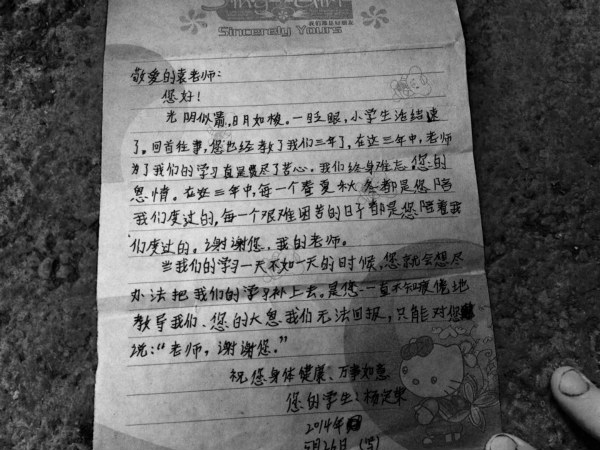 我们是友好朋友
Sincerely Yours
敬爱的袁老师：
您好！
光阴似箭，日月如梭。一眨眼，小学生活结速
了。回首往事，您也经教了我们三年了，在这三年中，老师
为了我们的学习真是费尽了苦心。我们终身难忘。您的
恩情。在这三年中，每一个春夏秋冬都是您陪
我们度过的，每一个艰难困苦的日子都是您陪着我
们度过的。谢谢您，我的老师。
当我们的学习一天不如一天的时候，您就会想尽
办法把我们的学习补上去。是您一直不知疲倦地
教导我们、您的大恩我们无法回报，只能对您
说：“老师，谢谢您。”
祝您身体健康、万事如意
您的学生：杨
2014年
5月26日（写）